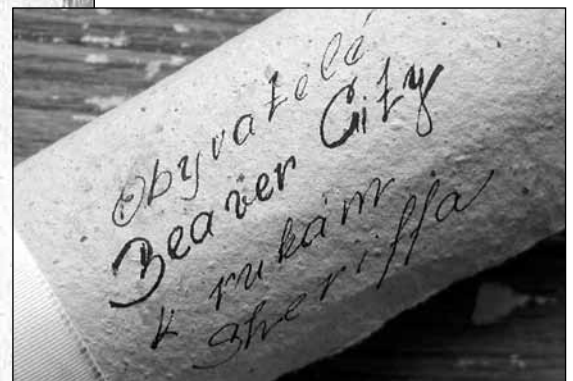 Obyvatelé
Beaver City
k rukám
Sheriffa